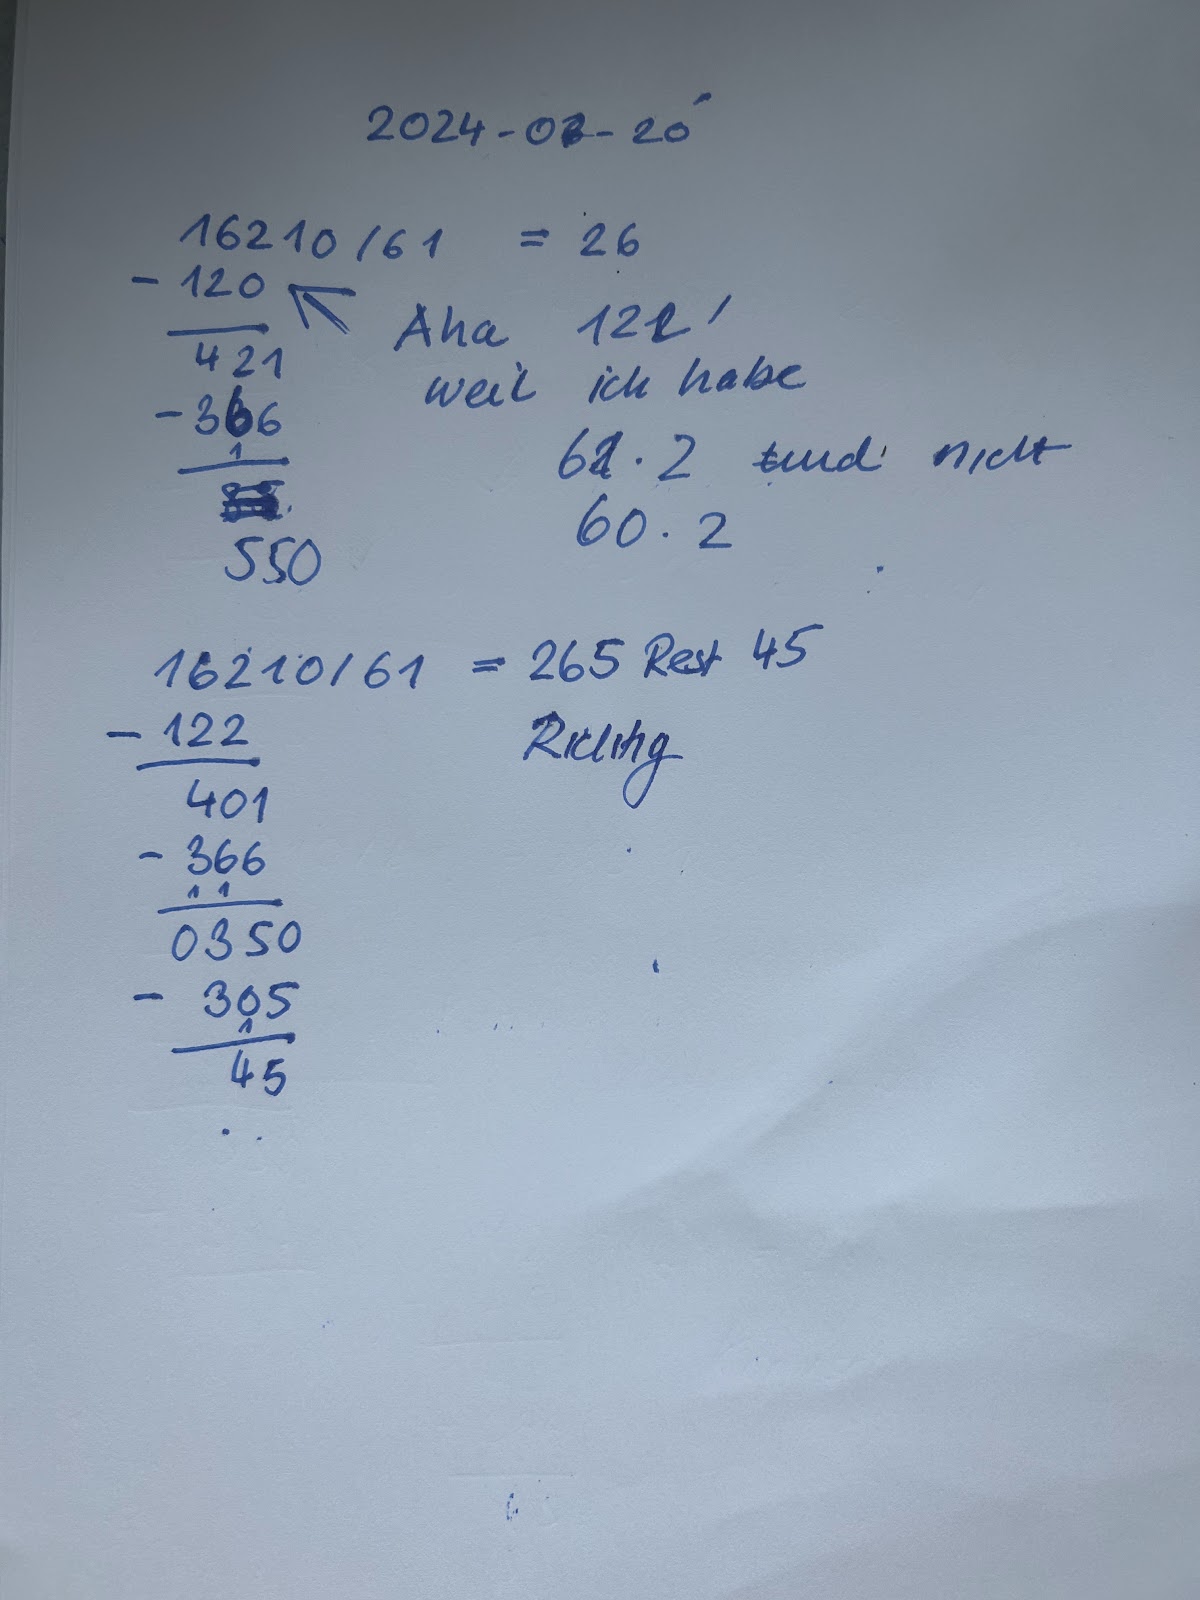 2024-03-20
16210/61 = 26
- 120
Aha 122!
421
weil ich habe
- 366
1
61 . 2 und nicht
550
60 . 2
16210/61 = 265 Rest 45
- 122
Richtig
401
- 366
1 1
0350
- 305
1
45